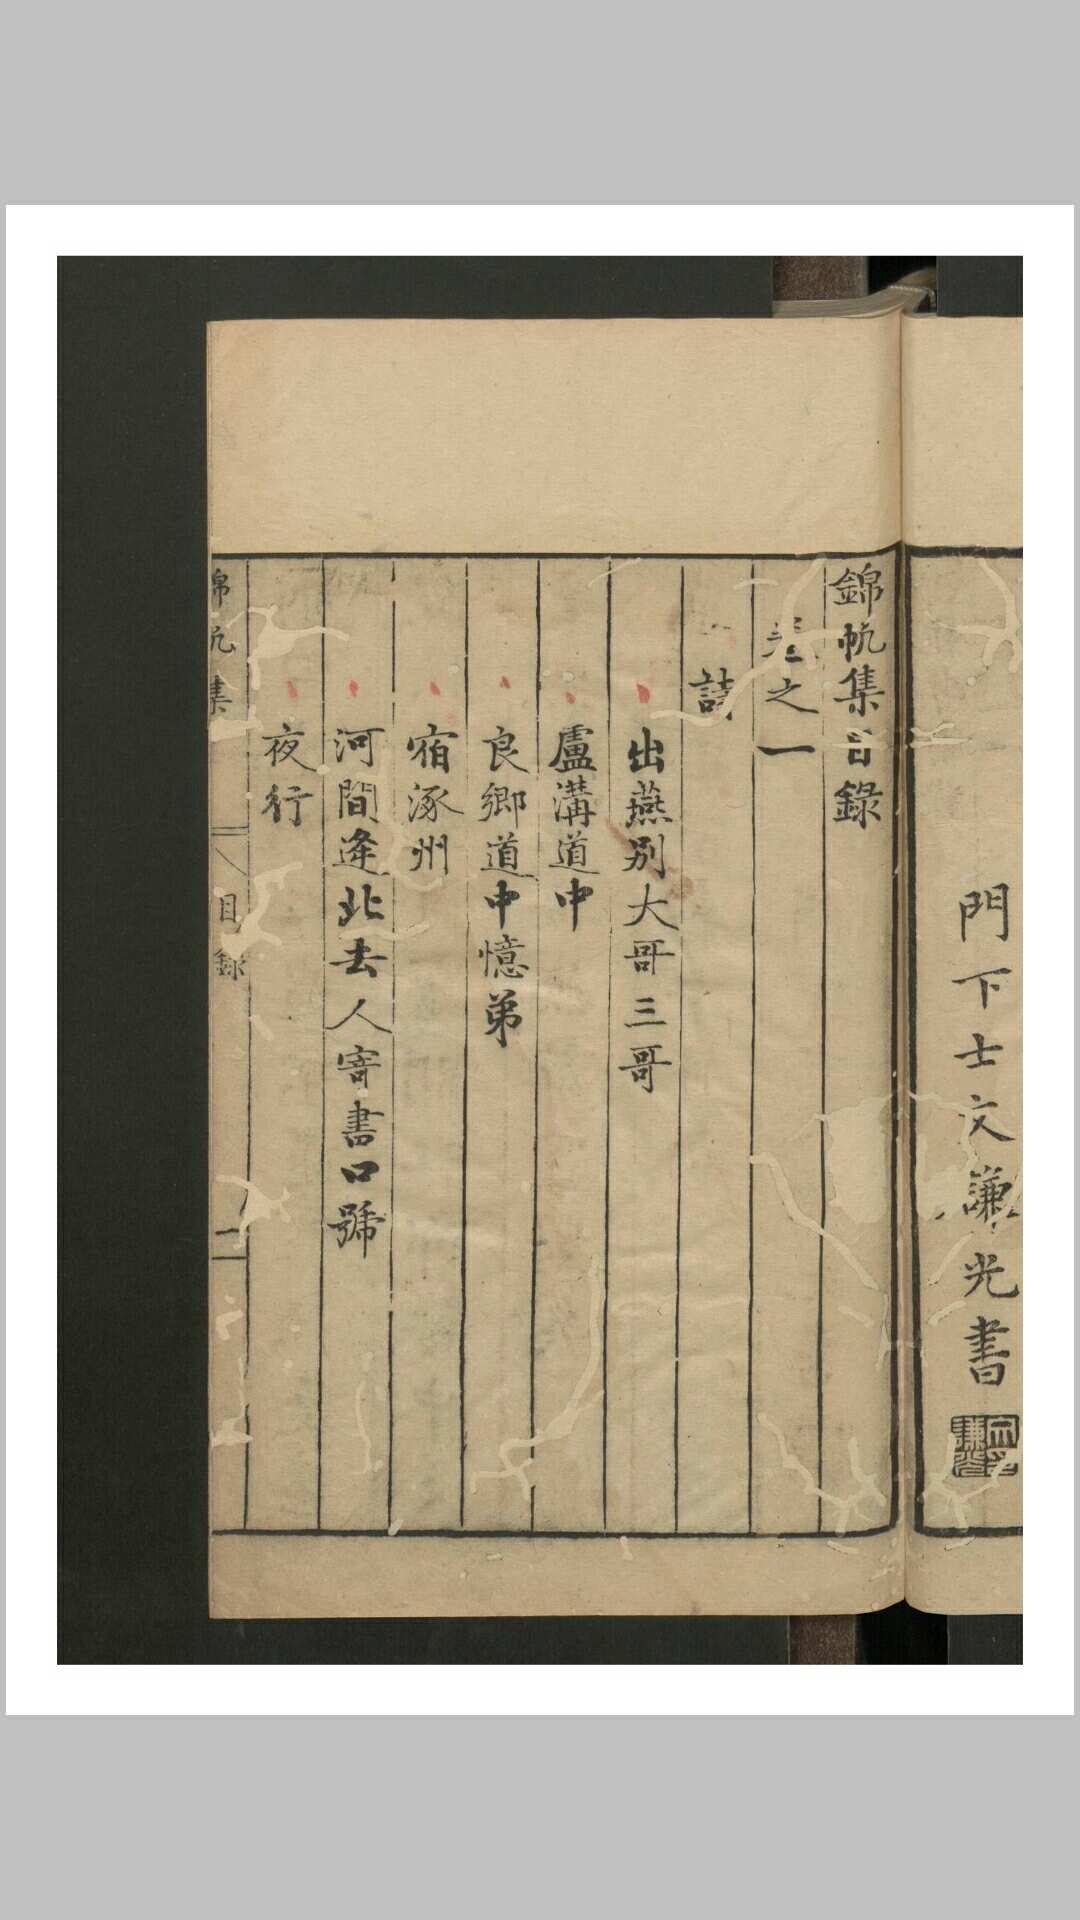 門下士文謙光書
錦帆集目錄
卷之一
詩
出燕別大哥三哥
盧溝道中
良鄉道中憶弟
宿涿州
河間逢北去人寄書口號
夜行
錦帆集
目錄
一